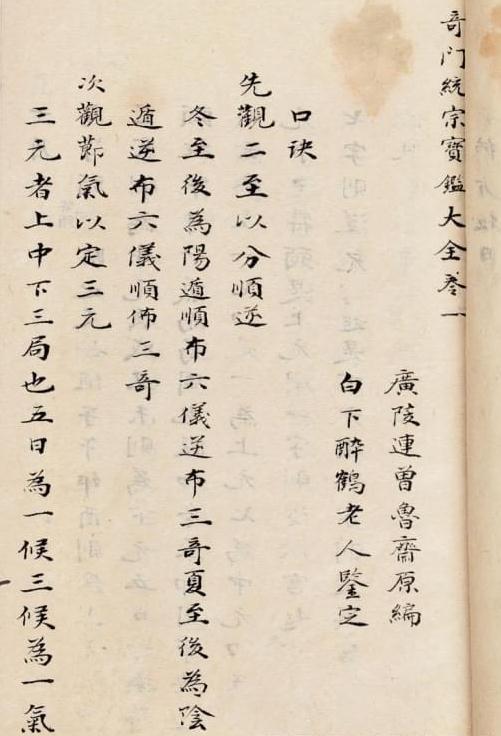 奇门統宗寶鑑大全卷一
廣陵連曾魯齋原編
白下醉鶴老人鑒定
口诀
先觀二至以分順逆
冬至後為陽遁順布六儀逆布三奇夏至後為陰
遁逆布六儀順佈三奇
次觀節氣以定三元
三元者上中下三局也五日為一候三候為一氣